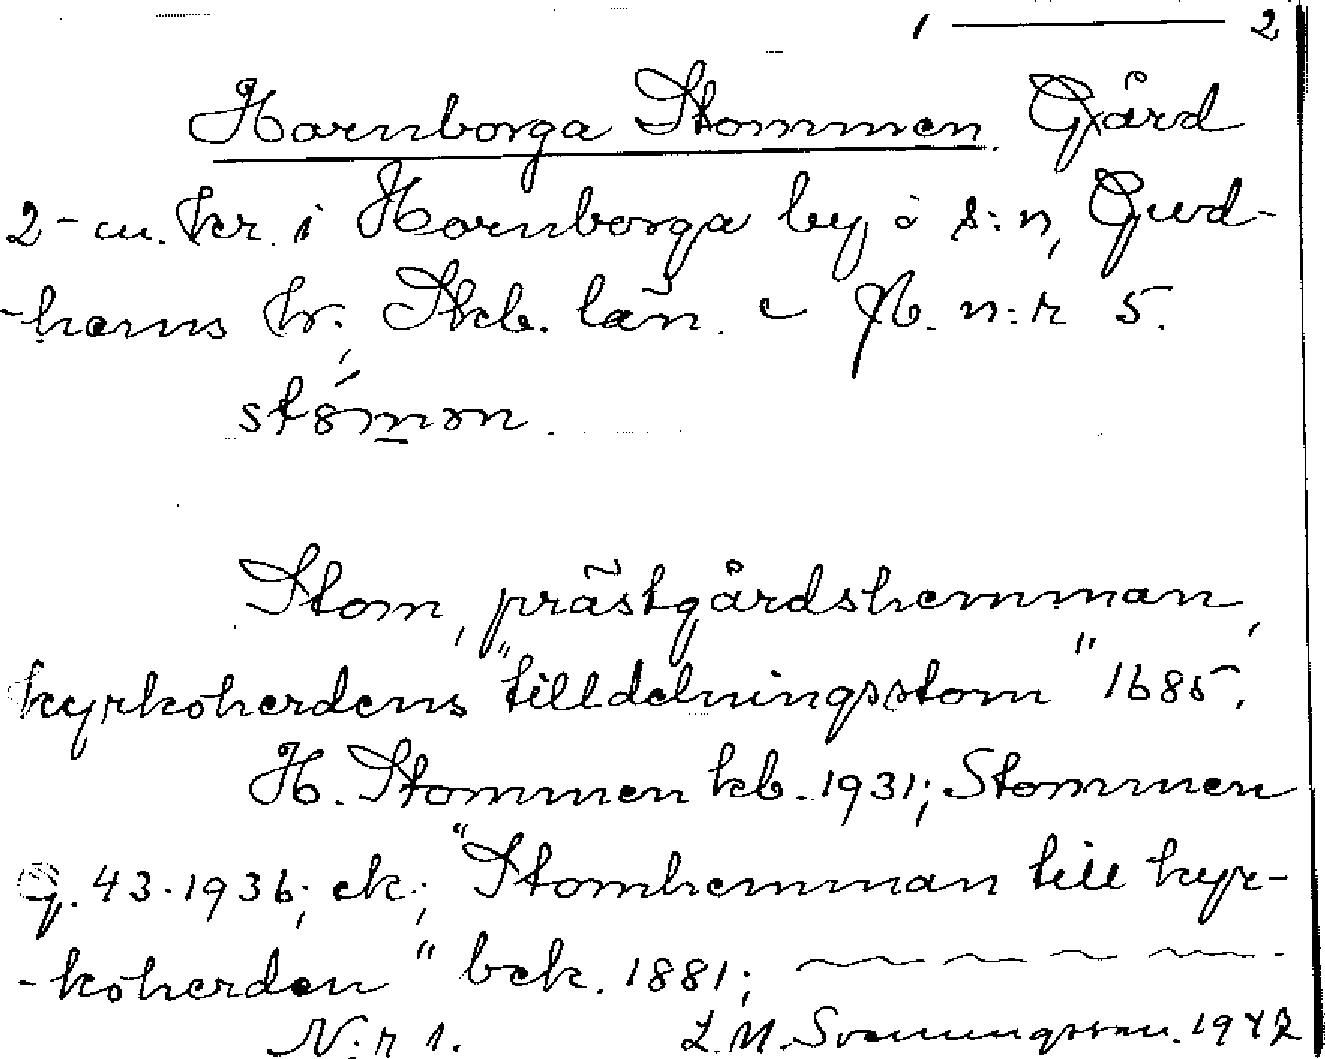 1 — 2
Hornborga Stommen. Gård
2-m. kr. i Hornborga by o s:n, Gud-
-hems hr. Skb. län. - Jb. n:r 5.
stómən.
Stom, prästgårdshemman,
kyrkoherdens "tilldelningsstom" 1685.
H. Stommen kb. 1931; Stommen
G. 43. 1936; ek.; "Stomhemman till kyr-
-koherden" bek. 1881;
N:r 1. L.M. Svenungsson. 1942